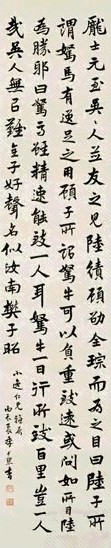 龐士元至吳吳人友之見陸績顧劭全琮而為之目曰陸子所
謂駑馬有逸足之用顧子所謂駑牛可以負重致遠或問如所目陸
為勝耶曰駑馬雖精速能致一人耳駑牛一日行所致百里豈一人
哉吳人無以難全子好聲名似汝南樊子昭
仁兄雅屬
書